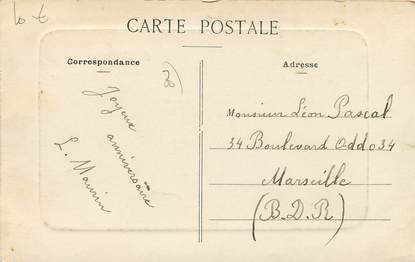 10 €
CARTE POSTALE
Correspondance
Adresse
38
Joyeux
anniversaire
L. Maurin
Monsieur Léon Pascal
34 Boulevard Oddo 34
Marseille
(B.D.R)